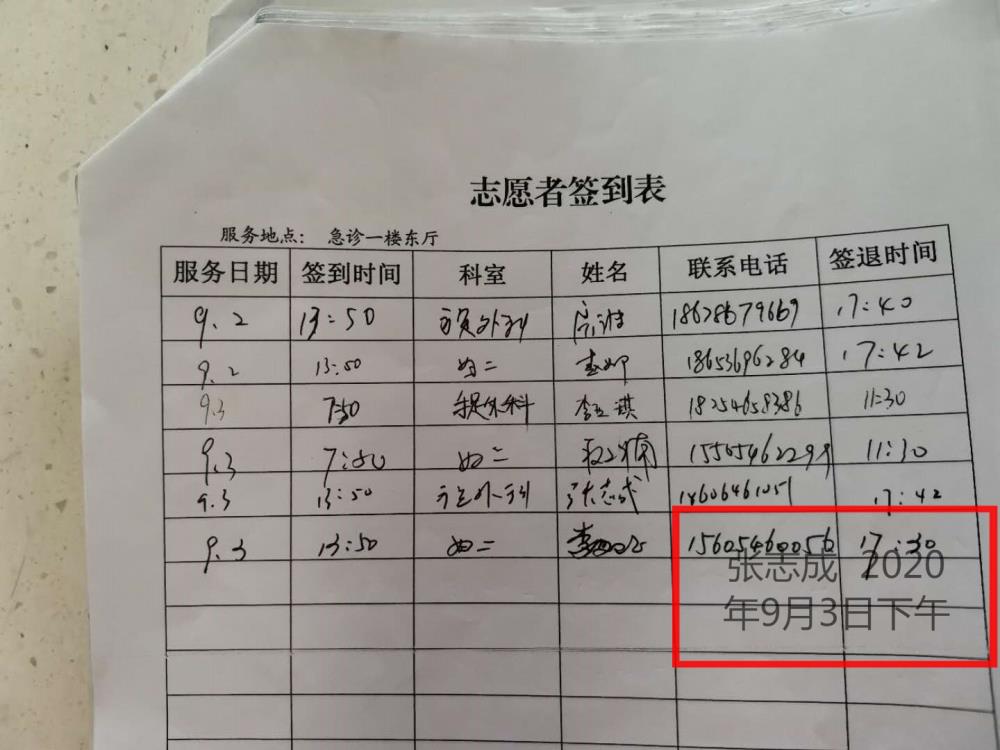 志愿者签到表
服务地点： 急诊一楼东厅
服务日期 签到时间 科室 姓名 联系电话 签退时间
9.2 13:50 外科 18678679669 17:40
9.2 13:50 妇二 18653696284 17:42
9.3 7:50 外科 李 18254658386 11:30
9.3 7:50 妇二 15505462299 11:30
9.3 13:50 外科 张志成 17:42
9.3 13:50 妇二 李 15605460056 17:30
张志成 2020
年9月3日下午